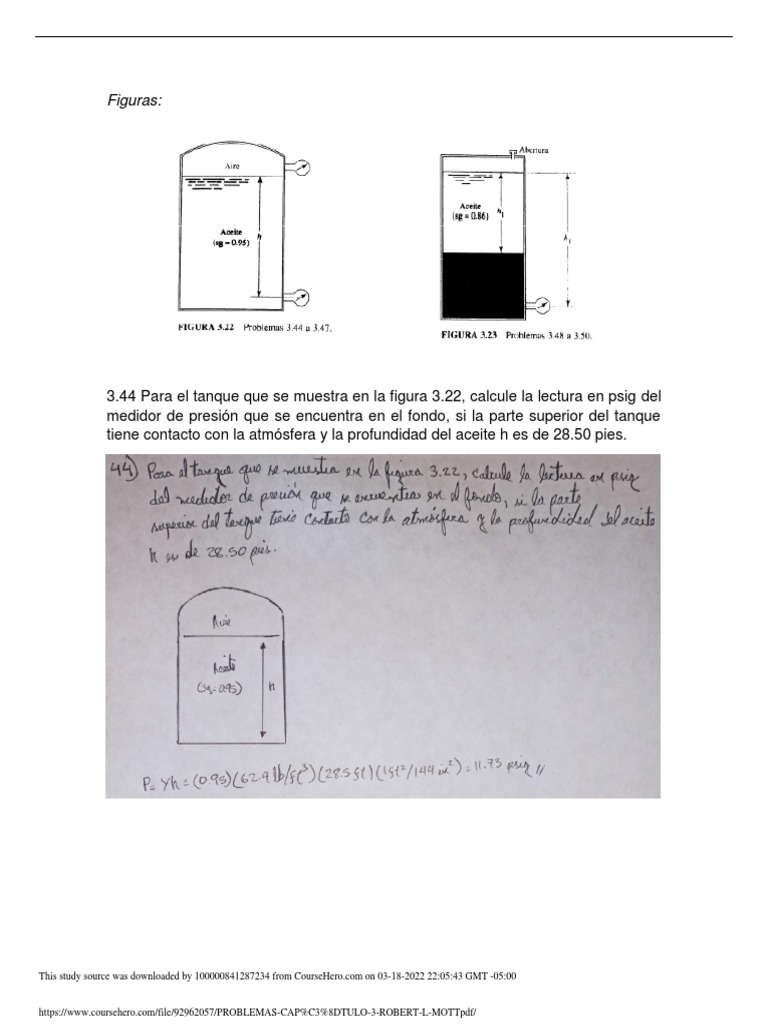 Figuras:
Aire
Aceite
(sg = 0.95)
h
FIGURA 3.22 Problemas 3.44 a 3.47.
Abertura
Aceite
(sg = 0.86)
h1
hT
FIGURA 3.23 Problemas 3.48 a 3.50.
3.44 Para el tanque que se muestra en la figura 3.22, calcule la lectura en psig del
medidor de presión que se encuentra en el fondo, si la parte superior del tanque
tiene contacto con la atmósfera y la profundidad del aceite h es de 28.50 pies.
44) Para el tanque que se muestra en la figura 3.22, calcule la lectura en psig
del medidor de presión que se encuentra en el fondo, si la parte
superior del tanque tiene contacto con la atmósfera y la profundidad del aceite
h es de 28.50 pies.
Aire
Aceite
(sg=0.95)
h
P= γh = (0.95)(62.4 lb/ft³)(28.5 ft)(1ft²/144 in²) = 11.73 psig //
This study source was downloaded by 100000841287234 from CourseHero.com on 03-18-2022 22:05:43 GMT -05:00
https://www.coursehero.com/file/92962057/PROBLEMAS-CAP%C3%8DTULO-3-ROBERT-L-MOTTpdf/